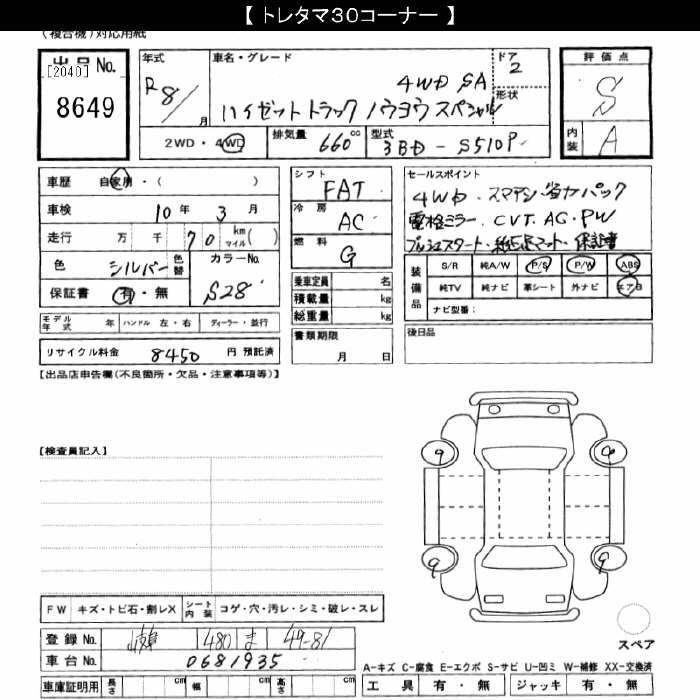 【 トレタマ30コーナー 】
(複合機)対応用紙
出品 No.
[2040]
8649
年式
R8/
月
車名・グレード
4WD SA
ハイゼットトラック ノウヨウ スペシャル
ドア
2
形状
2WD・4WD
排気量
660 cc
型式
3BD-S510P
評価点
S
内装
A
車歴 自家用・( )
車検 10年 3月
走行 万 千 70 km マイル( )
色 シルバー 色替
カラーNo.
S28
保証書 有・無
シフト
FAT
冷房
AC
燃料
G
乗車定員 名
積載量 kg
総重量 kg
セールスポイント
4WD・スマアシ・省力パック
電格ミラー・CVT. AC・PW
プッシュスタート・純正マット・保証書
装備品
S/R 純A/W P/S P/W ABS
純TV 純ナビ 革シート 外ナビ エアB
ナビ型番:
モデル年式 年 ハンドル 左・右 ディーラー・並行
書類期限
月 日
後日品
リサイクル料金 8450 円 預託済
【出品店申告欄(不良箇所・欠品・注意事項等)】
【検査員記入】
9
9
9
9
FW キズ・トビ石・割レX シート内装 コゲ・穴・汚レ・シミ・破レ・スレ
登録 No. 岐阜 480 ま 49-81
車台 No. 0681935
車庫証明用 長さ cm 幅 cm 高さ cm
スペア
A-キズ C-腐食 E-エクボ S-サビ U-凹ミ W-補修 XX-交換済
工具 有・無 ジャッキ 有・無